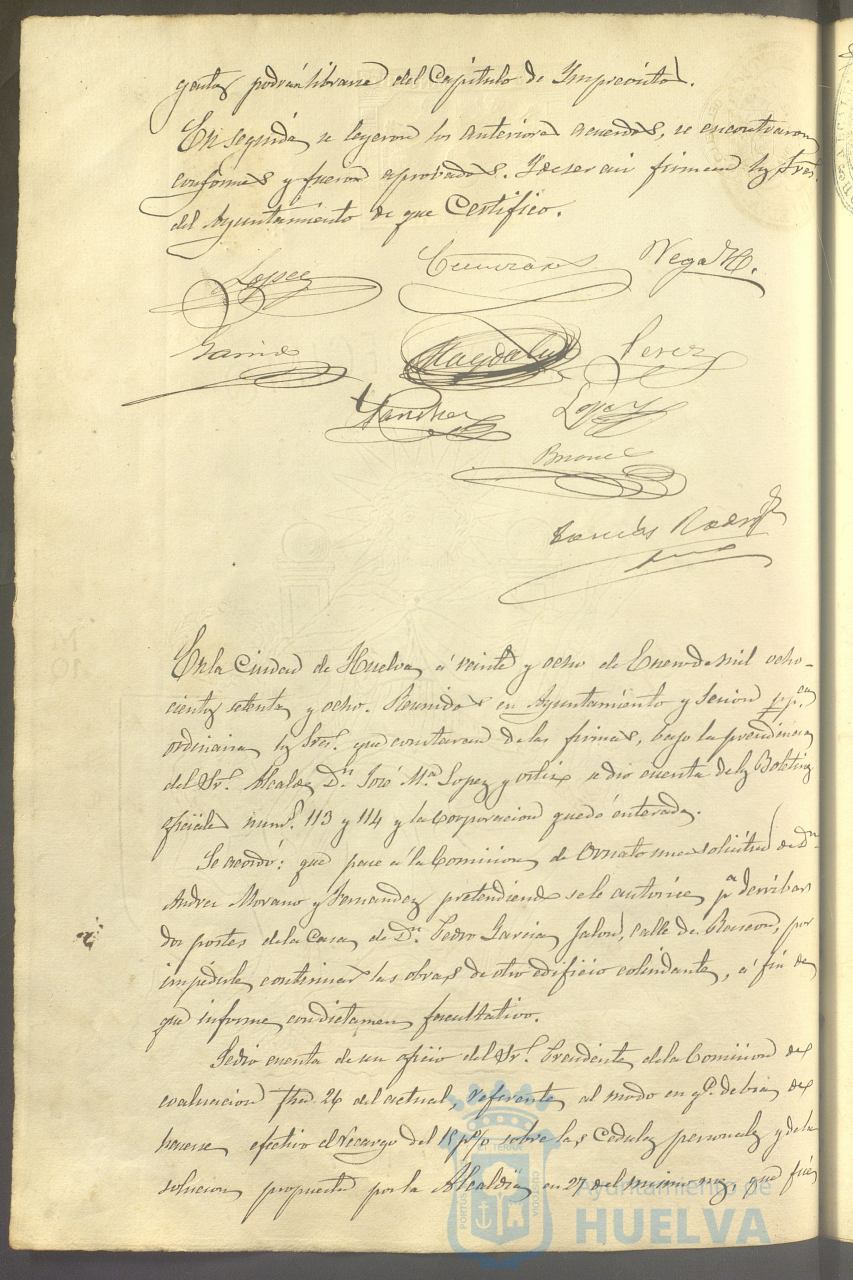 gentes podrán librarse del Capítulo de Imprevistos.
En seguida se leyeron los anteriores acuerdos, se encontraron
conformes y fueron aprobados. Y de ser asi firman los Sres.
del Ayuntamiento de que Certifico.
Lopez Vega
Garcia Magdalena Perez
Sanchez Lopez
Tomás Rodrig
En la Ciudad de Huelva á veinte y ocho de Enero de mil ocho-
cientos setenta y ocho. Reunidos en Ayuntamiento y Sesion
ordinaria los Sres. que constaran de las firmas, bajo la presidencia
del Sr. Alcalde Dn. José Ma. Lopez y Ortiz se dio cuenta de los Boletines
oficiales nums. 113 y 114 y la Corporacion quedó enterada.
Se acordó: que pase á la Comision de Ornato una solicitud de Dn.
Andres Morano y Fernandez pretendiendo se le autorice pa. derribar
dos postes de la Casa de Dn. Pedro Garcia Jalon, calle de Rascon, por
impedirle continuar las obras de otro edificio colindante, á fin de
que informe con dictamen facultativo.
Se dio cuenta de un oficio del Sr. Presidente de la Comision de
evaluacion fha. 26 del actual, referente al modo en q. debia de
hacerse efectivo el recargo del 15 p% sobre las Cedulas personales y de la
solucion propuesta por la Alcaldia en 27 del mismo mes, que fué
Ayuntamiento de
HUELVA